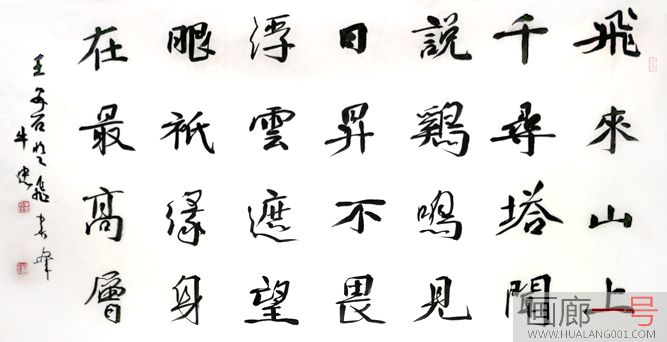 飛來山上
千尋塔聞
說鷄鳴見
日昇不畏
浮雲遮望
眼祇緣身
在最高層
王安石登飛來峰
牛
画廊一号
WWW.HUALANG001.COM